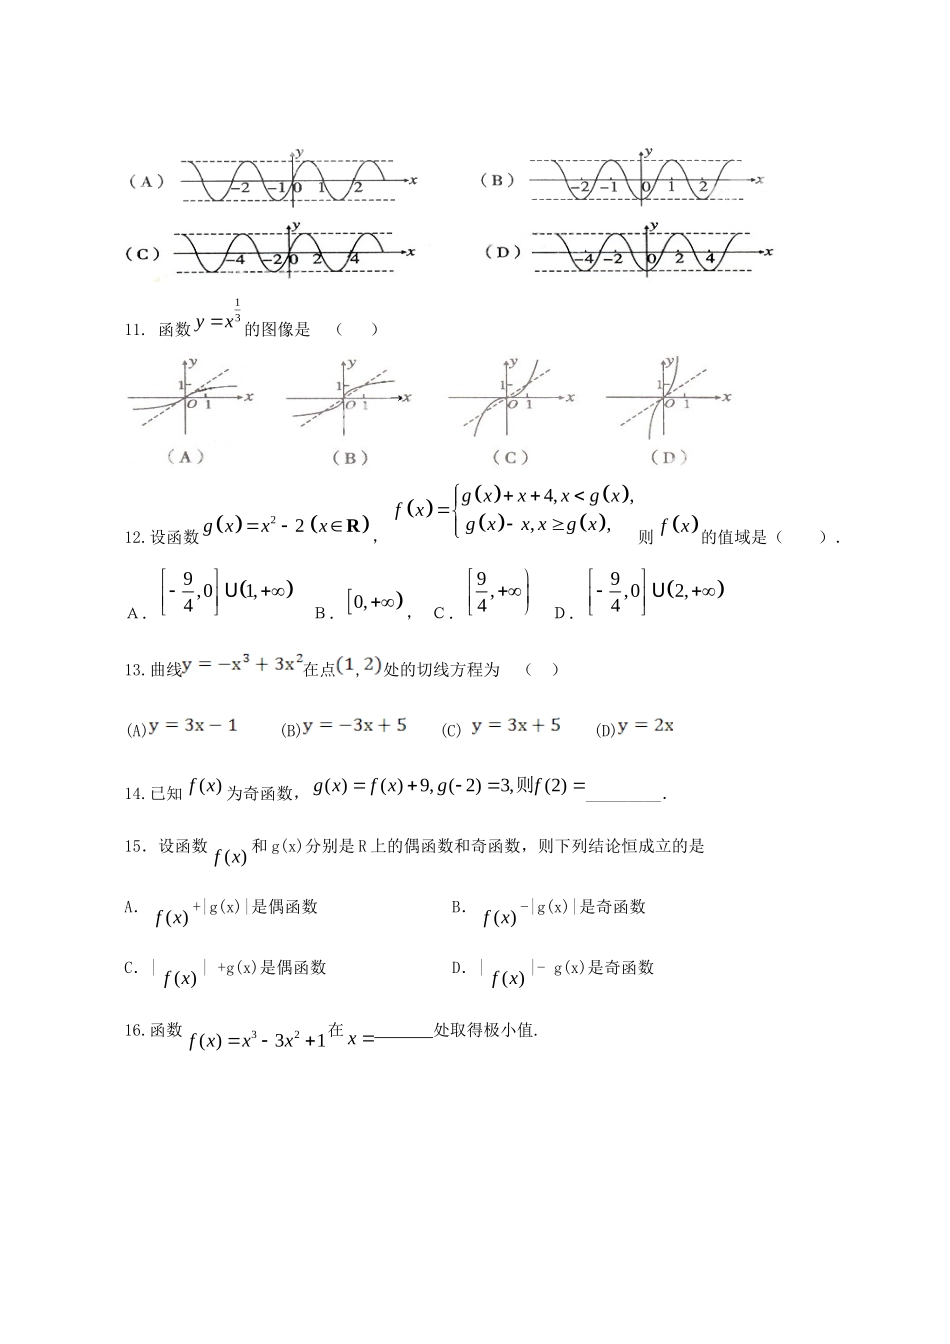 (A) y x -2 -1 0 1 2 (B) y x -2 -1 0 1 2
(C) y x -4 -2 0 2 4 (D) y x -4 -2 0 2 4
11. 函数 y = x^{1/3} 的图像是 ( )
y 1 O 1 x y 1 O 1 x y 1 O 1 x y 1 O 1 x
(A) (B) (C) (D)
12.设函数 g(x) = x² - 2 (x∈R), f(x) = { g(x) + x + 4, x < g(x), g(x) - x, x ≥ g(x), 则 f(x) 的值域是( ).
A. [-9/4, 0] ∪ (1, +∞) B. [0, +∞), C. [9/4, +∞) D. [-9/4, 0] ∪ (2, +∞)
13.曲线y = -x³ + 3x²在点(1, 2)处的切线方程为 ( )
(A)y = 3x - 1 (B)y = -3x + 5 (C) y = 3x + 5 (D)y = 2x
14.已知 f(x) 为奇函数, g(x) = f(x) + 9, g(-2) = 3, 则f(2) = ________.
15. 设函数 f(x) 和 g(x)分别是 R 上的偶函数和奇函数, 则下列结论恒成立的是
A. f(x) +|g(x)|是偶函数 B. f(x) -|g(x)|是奇函数
C. | f(x) | +g(x)是偶函数 D. | f(x) |- g(x)是奇函数
16.函数 f(x) = x³ - 3x² + 1 在 x = ______处取得极小值.